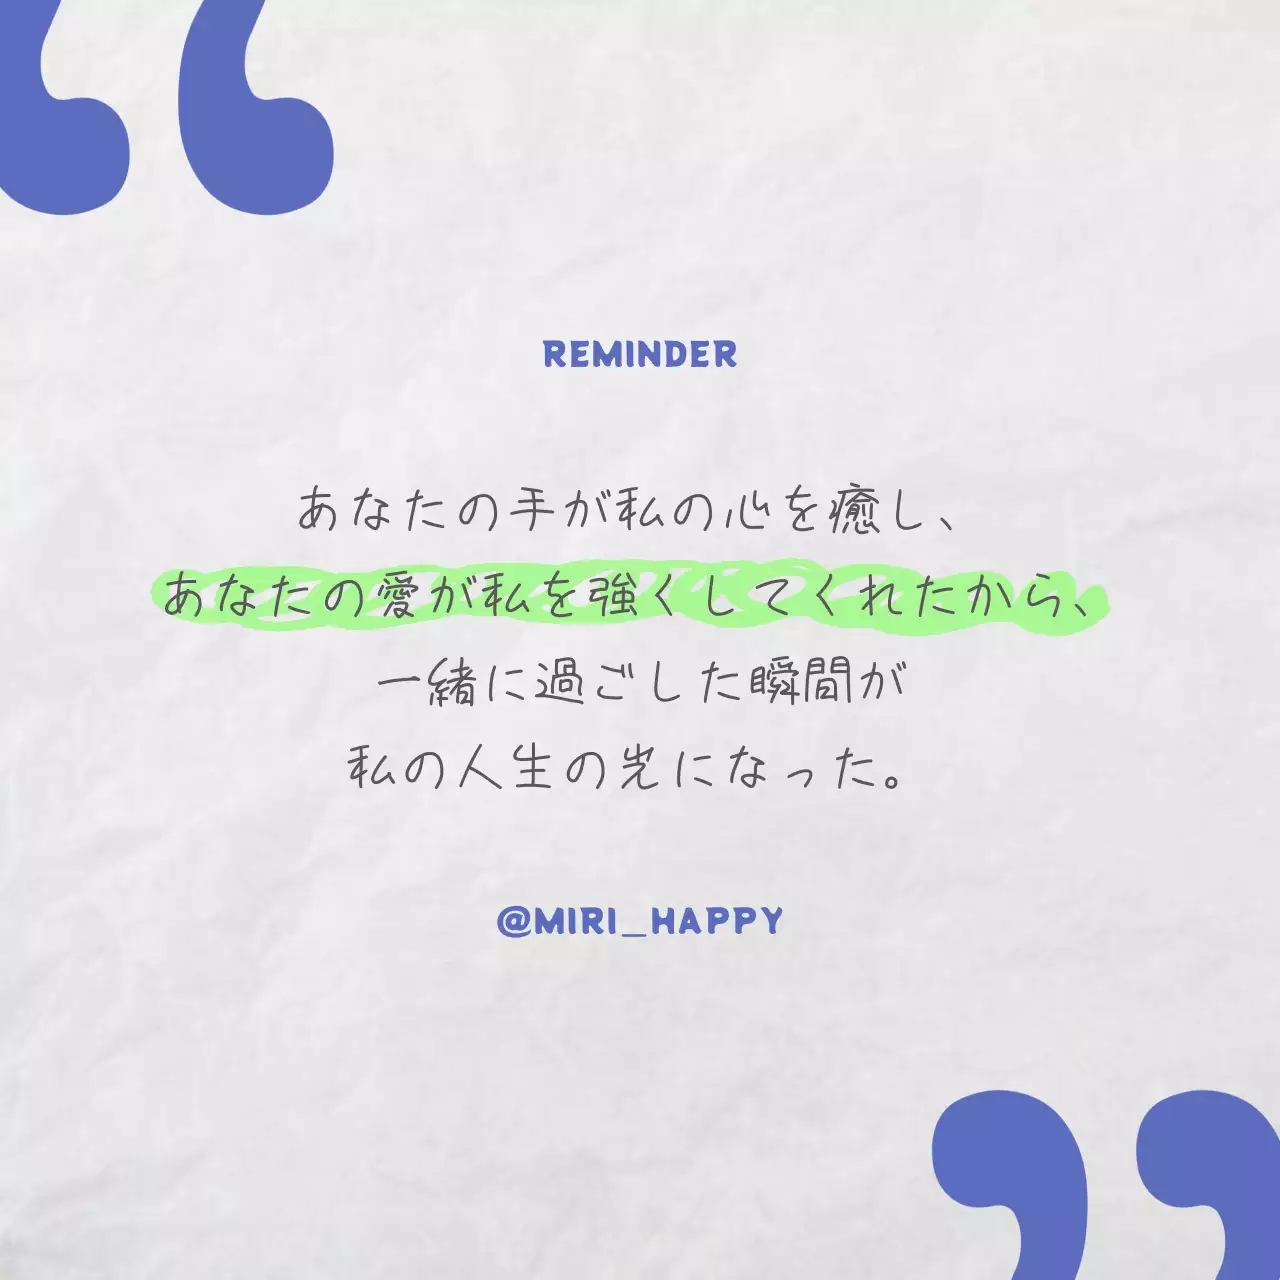 REMINDER
あなたの手が私の心を癒し、
あなたの愛が私を強くしてくれたから、
一緒に過ごした瞬間が
私の人生の光になった。
@MIRI_HAPPY